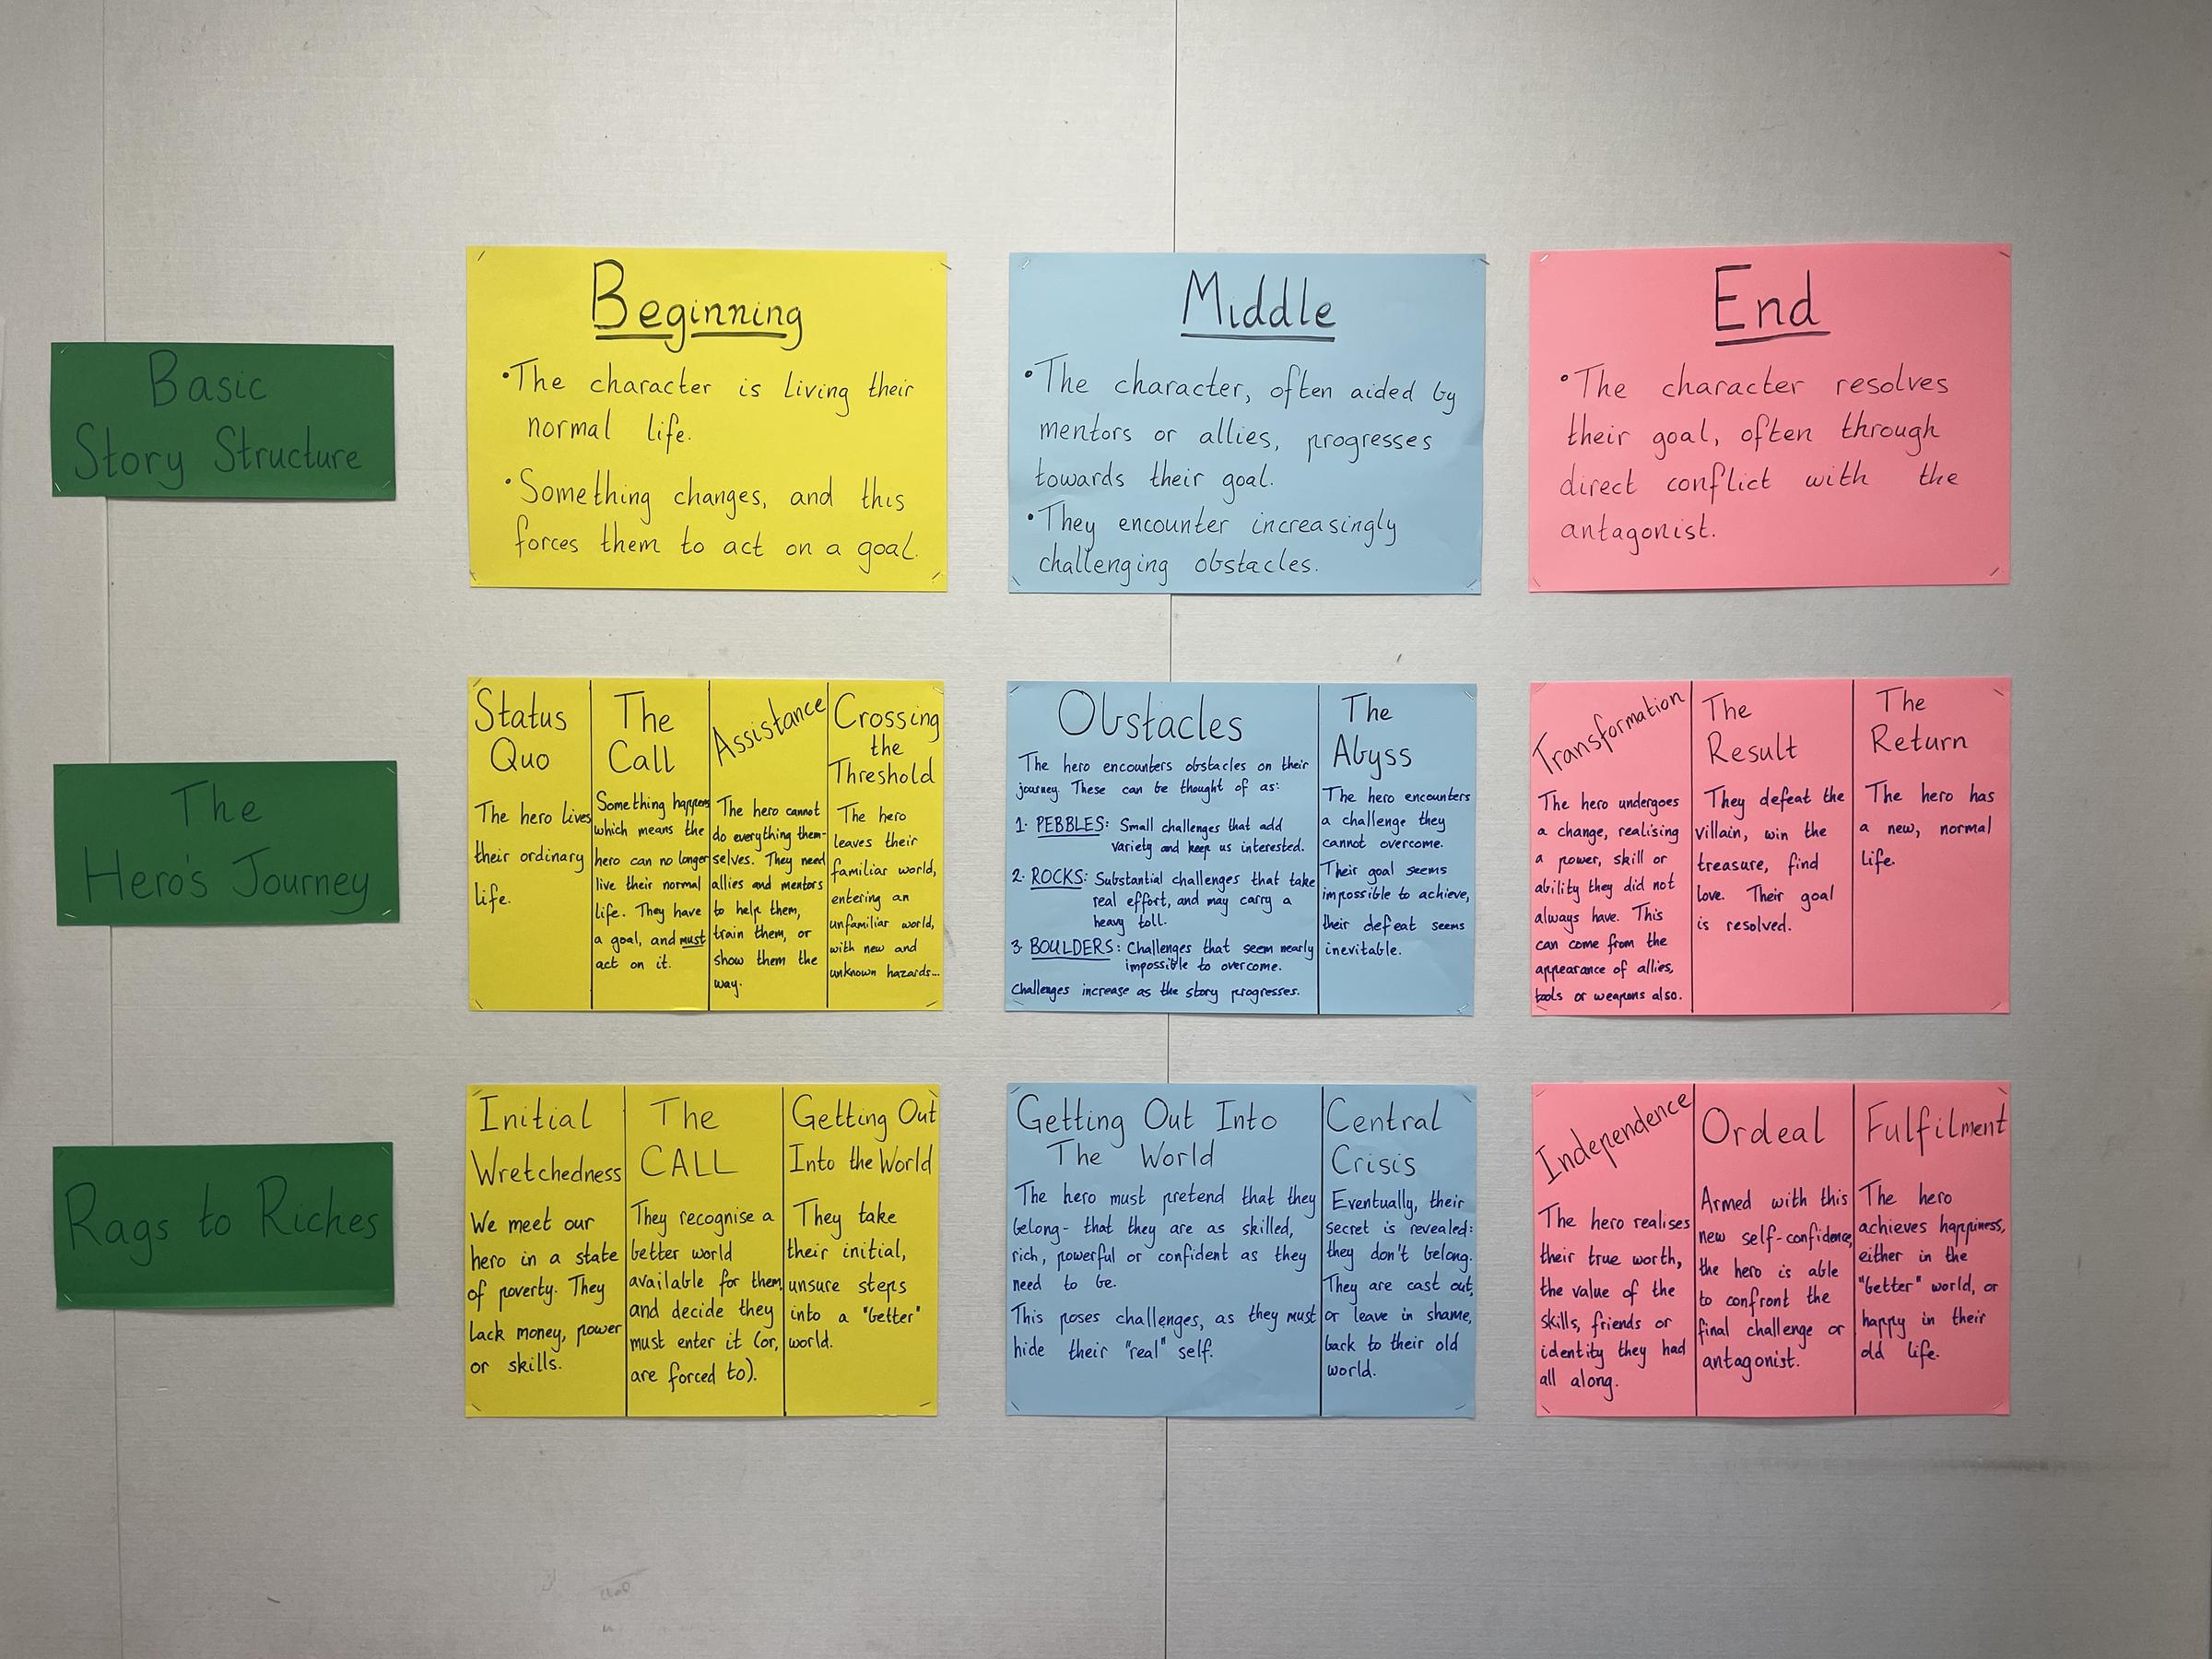 Basic
Story Structure
Beginning
•The character is living their
normal life.
•Something changes, and this
forces them to act on a goal.
Middle
•The character, often aided by
mentors or allies, progresses
towards their goal.
•They encounter increasingly
challenging obstacles.
End
•The character resolves
their goal, often through
direct conflict with the
antagonist.
The
Hero's Journey
Status
Quo
The hero lives
their ordinary
life.
The
Call
Something happens
which means the
hero can no longer
live their normal
life. They have
a goal, and must
act on it.
Assistance
The hero cannot
do everything them-
selves. They need
allies and mentors
to help them,
train them, or
show them the
way.
Crossing
the
Threshold
The hero
leaves their
familiar world,
entering an
unfamiliar world,
with new and
unknown hazards...
Obstacles
The hero encounters obstacles on their
journey. These can be thought of as:
1. PEBBLES: Small challenges that add
variety and keep us interested.
2. ROCKS: Substantial challenges that take
real effort, and may carry a
heavy toll.
3 BOULDERS: Challenges that seem nearly
impossible to overcome.
Challenges increase as the story progresses.
The
Abyss
The hero encounters
a challenge they
cannot overcome.
Their goal seems
impossible to achieve,
their defeat seems
inevitable.
Transformation
The hero undergoes
a change, realising
a power, skill or
ability they did not
always have. This
can come from the
appearance of allies,
tools or weapons also.
The
Result
They defeat the
villain, win the
treasure, find
love. Their goal
is resolved.
The
Return
The hero has
a new, normal
life.
Rags to Riches
Initial
Wretchedness
We meet our
hero in a state
of poverty. They
lack money, power
or skills.
The
CALL
They recognise a
better world
available for them,
and decide they
must enter it (or,
are forced to).
Getting Out
Into the World
They take
their initial,
unsure steps
into a "better"
world.
Getting Out Into
The World
The hero must pretend that they
belong- that they are as skilled,
rich, powerful or confident as they
need to be.
This poses challenges, as they must
hide their "real" self.
Central
Crisis
Eventually, their
secret is revealed:
they don't belong.
They are cast out,
or leave in shame,
back to their old
world.
Independence
The hero realises
their true worth,
the value of the
skills, friends or
identity they had
all along.
Ordeal
Armed with this
new self-confidence,
the hero is able
to confront the
final challenge or
antagonist.
Fulfilment
The hero
achieves happiness,
either in the
"better" world, or
happy in their
old life.